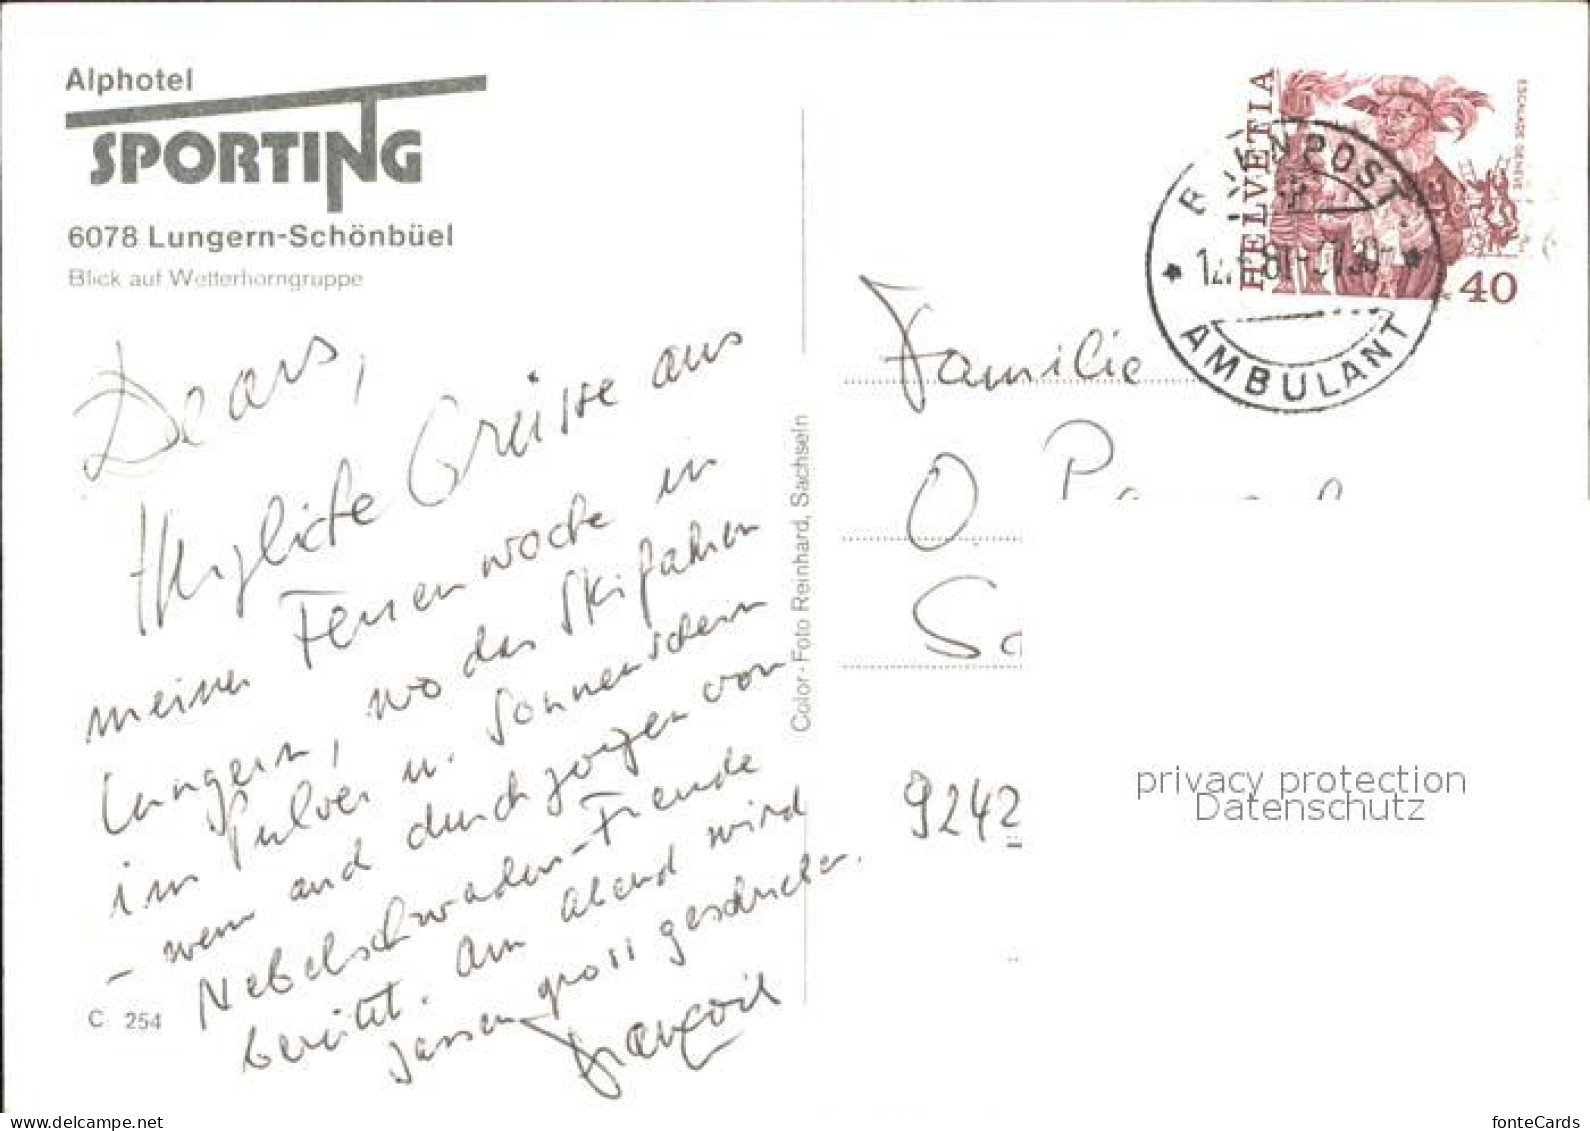 Alphotel
SPORTING
6078 Lungern-Schönbüel
Blick auf Wetterhorngruppe
Dears,
Herzliche Grüsse aus
meiner Ferienwoche in
Lungern, wo das Skifahren
im Pulver u. Sonnenschein
- wenn auch durchzogen von
Nebelschwaden - Freude
bereitet. Am Abend wird
Jassen gross geschrieben.
François
C 254
Color - Foto Reinhard, Sachseln
HELVETIA
ESCALADE GENÈVE
40
BAHNPOST
AMBULANT
Familie
O.
9242
privacy protection
Datenschutz
www.delcampe.net
fonteCards